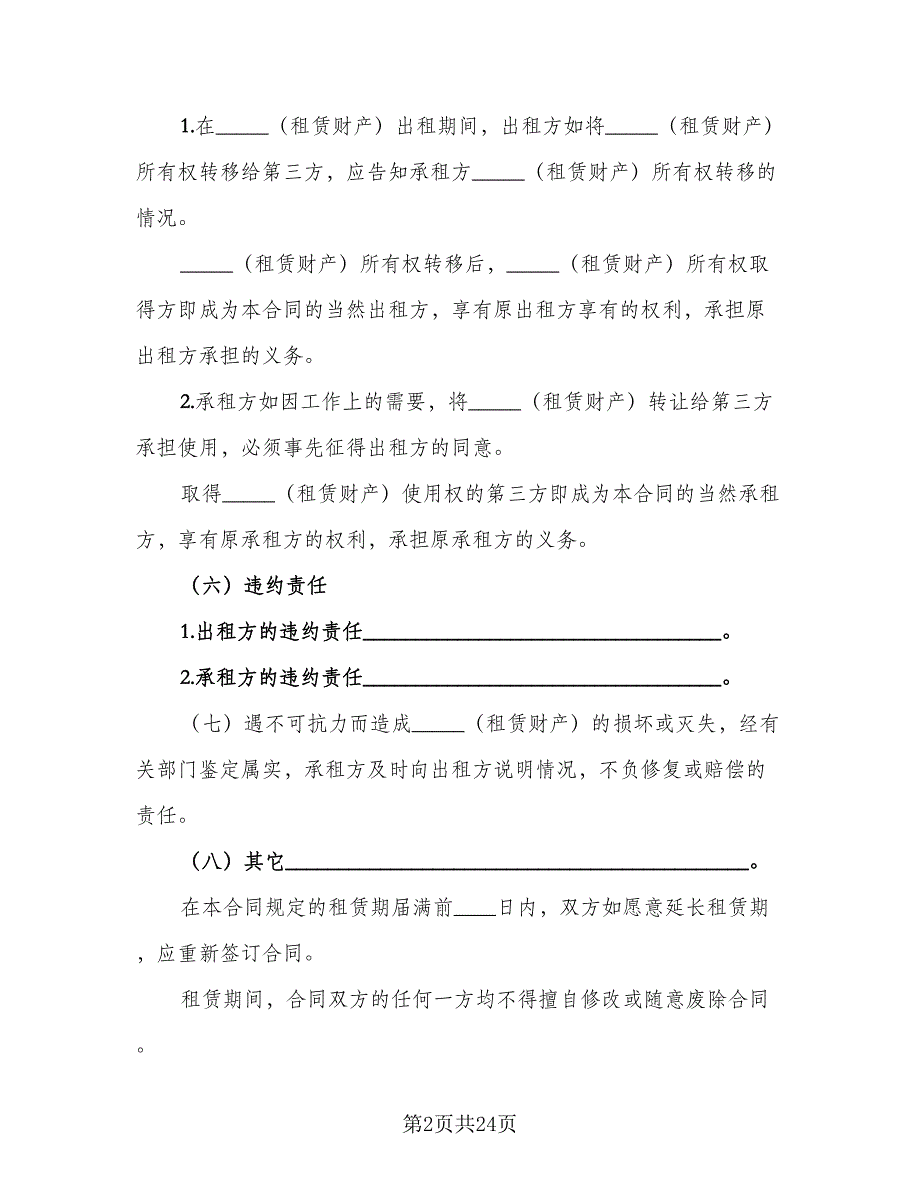 1.在_____（租赁财产）出租期间，出租方如将_____（租赁财产）
所有权转移给第三方，应告知承租方_____（租赁财产）所有权转移的
情况。
_____（租赁财产）所有权转移后，_____（租赁财产）所有权取
得方即成为本合同的当然出租方，享有原出租方享有的权利，承担原
出租方承担的义务。
2.承租方如因工作上的需要，将_____（租赁财产）转让给第三方
承担使用，必须事先征得出租方的同意。
取得_____（租赁财产）使用权的第三方即成为本合同的当然承租
方，享有原承租方的权利，承担原承租方的义务。
（六）违约责任
1.出租方的违约责任__________________________________。
2.承租方的违约责任__________________________________。
（七）遇不可抗力而造成_____（租赁财产）的损坏或灭失，经有
关部门鉴定属实，承租方及时向出租方说明情况，不负修复或赔偿的
责任。
（八）其它____________________________________________。
在本合同规定的租赁期届满前____日内，双方如愿意延长租赁期
，应重新签订合同。
租赁期间，合同双方的任何一方均不得擅自修改或随意废除合同
。
第2页共24页